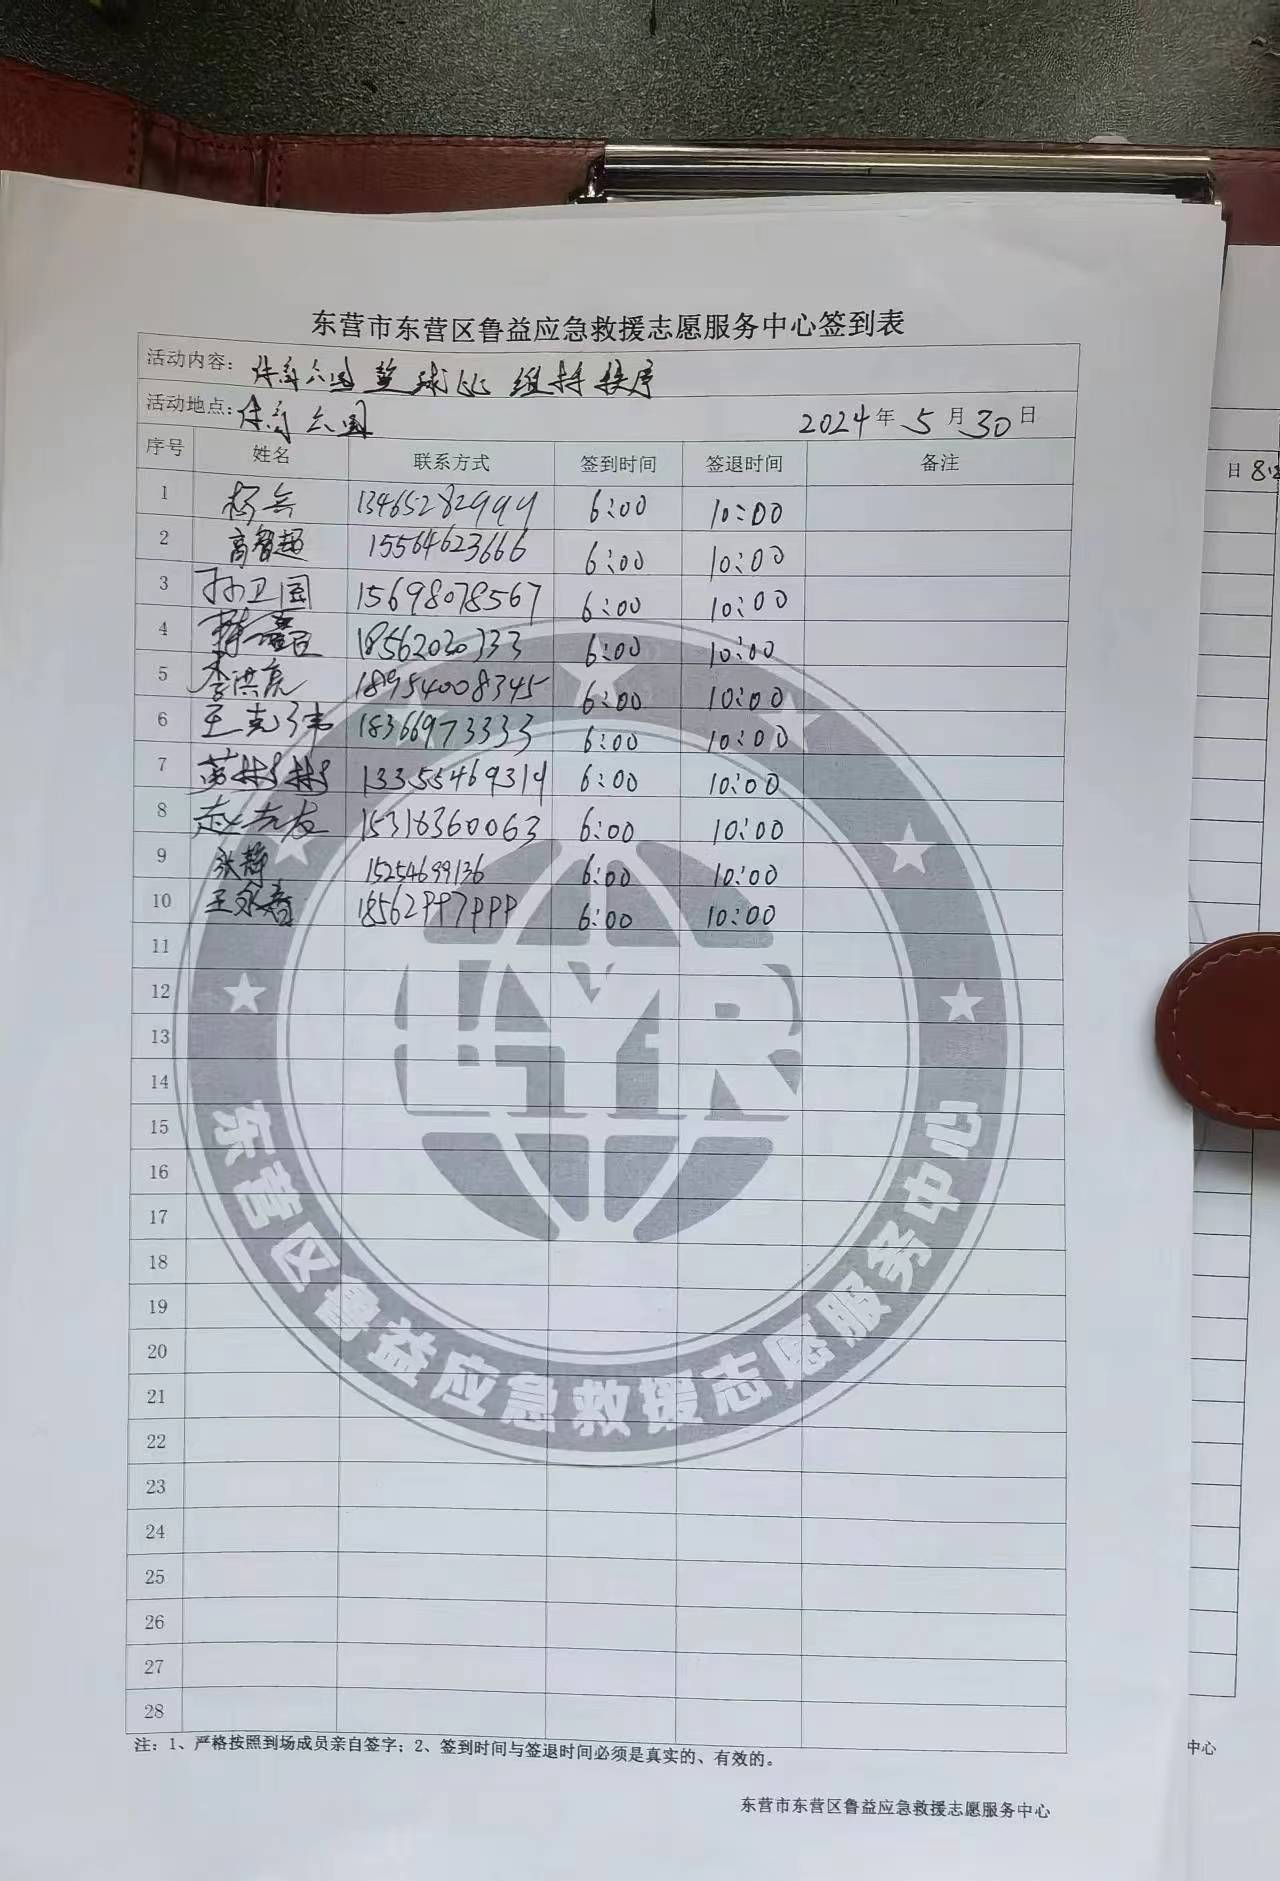 东营市东营区鲁益应急救援志愿服务中心签到表
活动内容: 体育公园篮球比 维持秩序
活动地点: 体育公园 2024年5月30日
序号 姓名 联系方式 签到时间 签退时间 备注
日 8:
1 杨 13465282999 6:00 10:00
2 高智超 15564623666 6:00 10:00
3 孙卫国 15698078567 6:00 10:00
4 6:00 10:00
5 李洪亮 18954008345 6:00 10:00
6 王克伟 18366973333 6:00 10:00
7 13355469319 6:00 10:00
8 赵友 15318360063 6:00 10:00
9 张静 15254699136 6:00 10:00
10 王永春 18562997999 6:00 10:00
11
12
13
14
15
16
17
18
19
20
21
22
23
24
25
26
27
28
LYR
东营区鲁益应急救援志愿服务中心
注：1、严格按照到场成员亲自签字；2、签到时间与签退时间必须是真实的、有效的。
中心
东营市东营区鲁益应急救援志愿服务中心